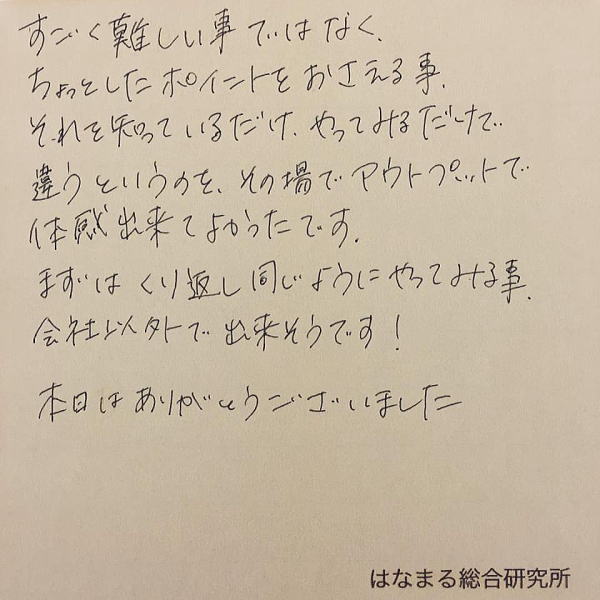 すごく難しい事ではなく、
ちょっとしたポイントをおさえる事、
それを知っているだけ、やってみるだけで
違うというのを、その場でアウトプットで
体感出来てよかったです。
まずはくり返し同じようにやってみる事、
会社以外で出来そうです！
本日はありがとうございました
はなまる総合研究所